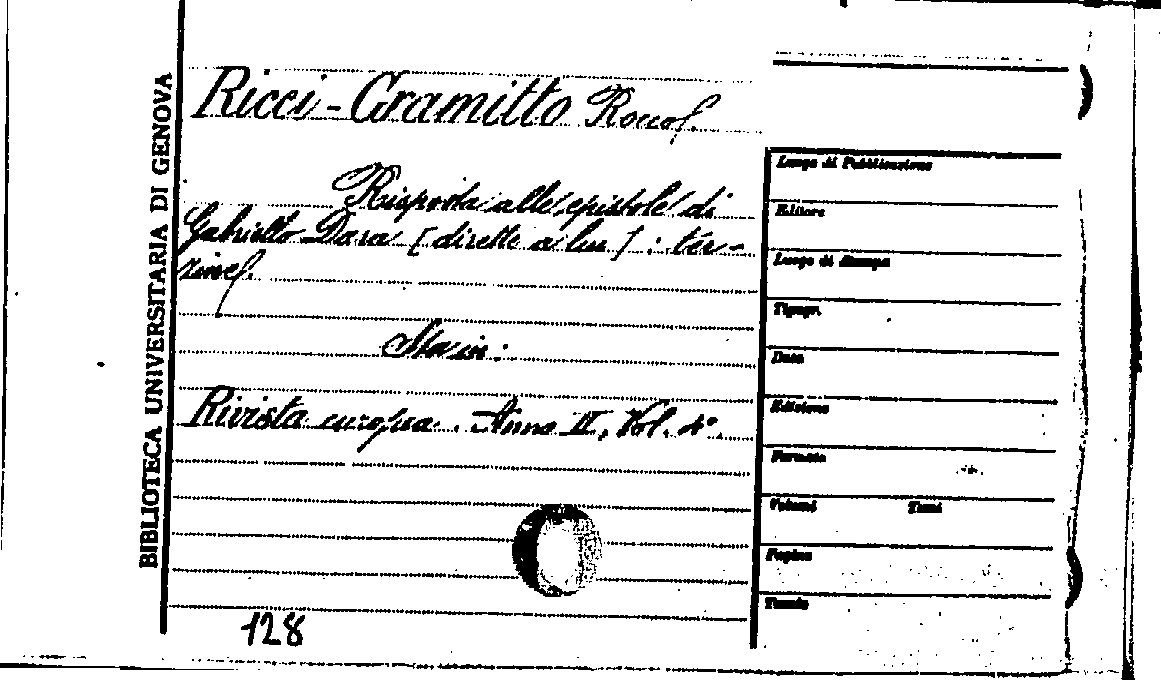 BIBLIOTECA UNIVERSITARIA DI GENOVA
Ricci-Gramitto Rocco.
Risposta alle epistole di
Gabriello Dara [dirette a lui]: ter-
zine.
Sta in:
Rivista europea. Anno II, Vol. 4°.
128
Luogo di Pubblicazione
Editore
Luogo di Stampa
Tipogr.
Data
Edizione
Formato
Volumi Tomi
Pagine
Tavole